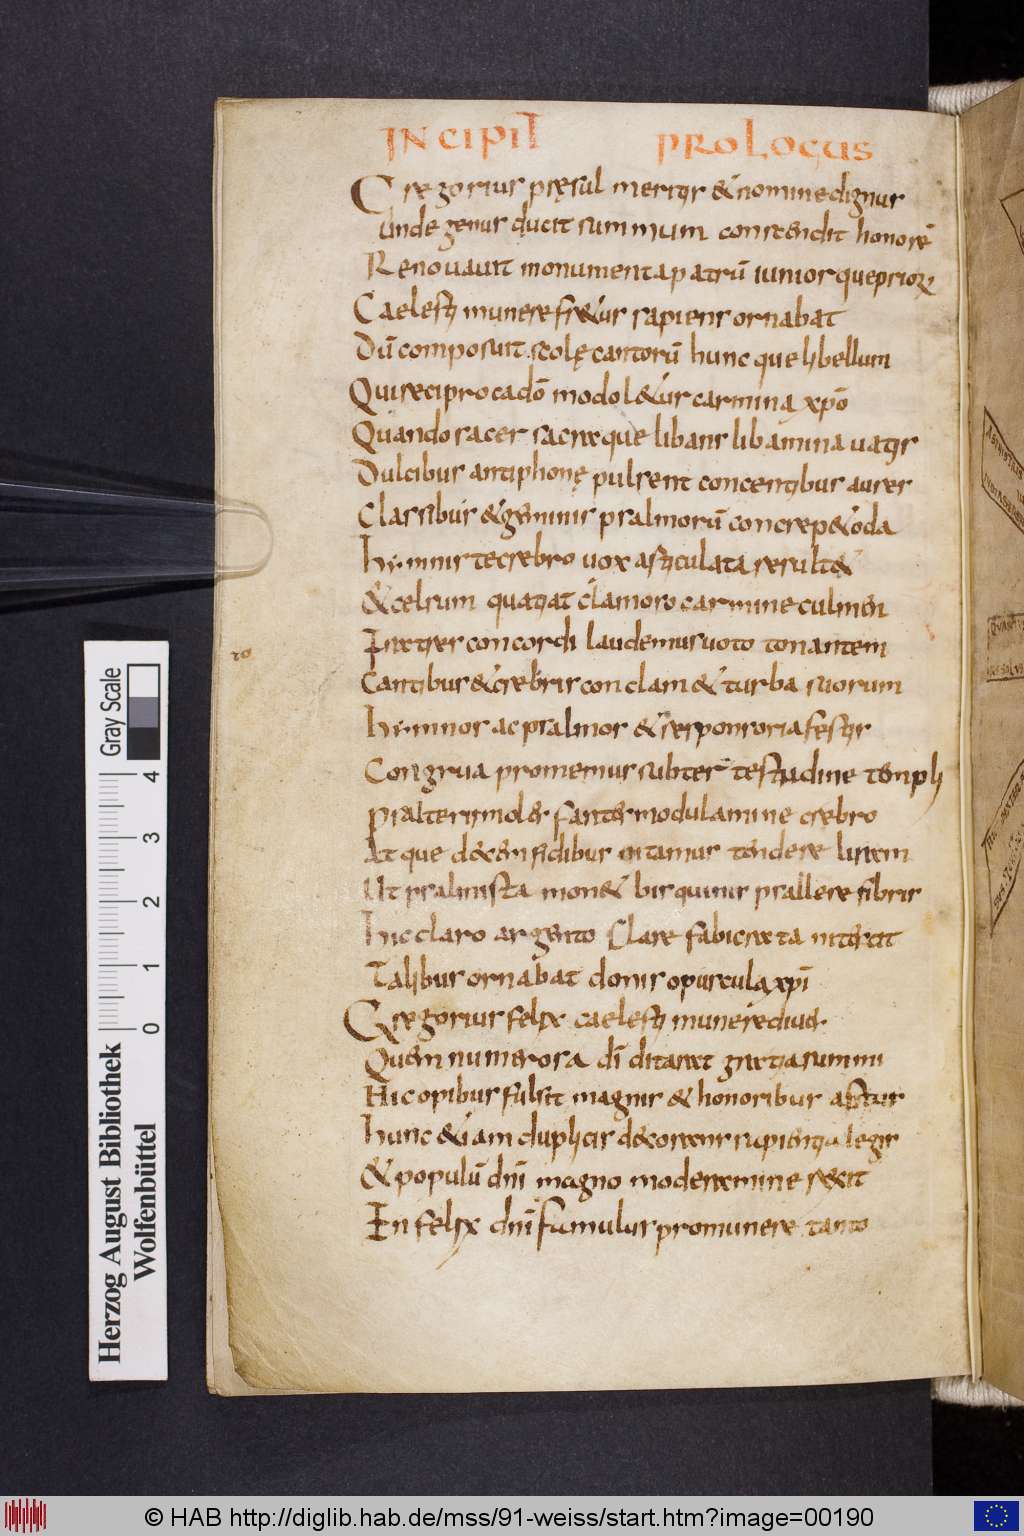 INCIPIT PROLOGUS
Gregorius pręsul meritis & nomine dignus
Unde genus ducit summum conscendit honorē
Renovavit monumenta patrū iuniorque prior
Caelesti munere fr&us sapiens ornabat
Dū composuit scolę cantorū hunc que libellum
Qui reciprocadō modol&ur carmina xp̄o
Quando sacer sacraque libans libamina vatis
Dulcibus antiphonę pulsent concentibus aures
Classibus & geminis psalmorū concrep& oda
hymnis te crebro vox articulata result&
& celsum quatiat clamoro carmine culmen
Fratres concordi laudemus voto tonantem
Cantibus & crebris conclam& turba suorum
hymnos ac psalmos & responsoria festis
Congrua promemus subter testudine templi
Psalterii moles fantes modulamine crebro
At que decem fidibus nitamur tendere liram
Ut psalmista mon& bis quinis psallere fibris
hic claro argento Clare fabricata nitescit
Talibus ornabat donis opuscula xp̄i
Gregorius felix caelesti munere dives
Quem numerosa dī ditaret gratia summi
Hic opibus fulsit magnis & honoribus astur
hunc & iam duplicis decorans sapientia legis
& populū dn̄i magno moderamine rexit
En felix dn̄i famulus pro munere tanto
10
Gray Scale
4
3
2
1
0
Herzog August Bibliothek
Wolfenbüttel
© HAB http://diglib.hab.de/mss/91-weiss/start.htm?image=00190